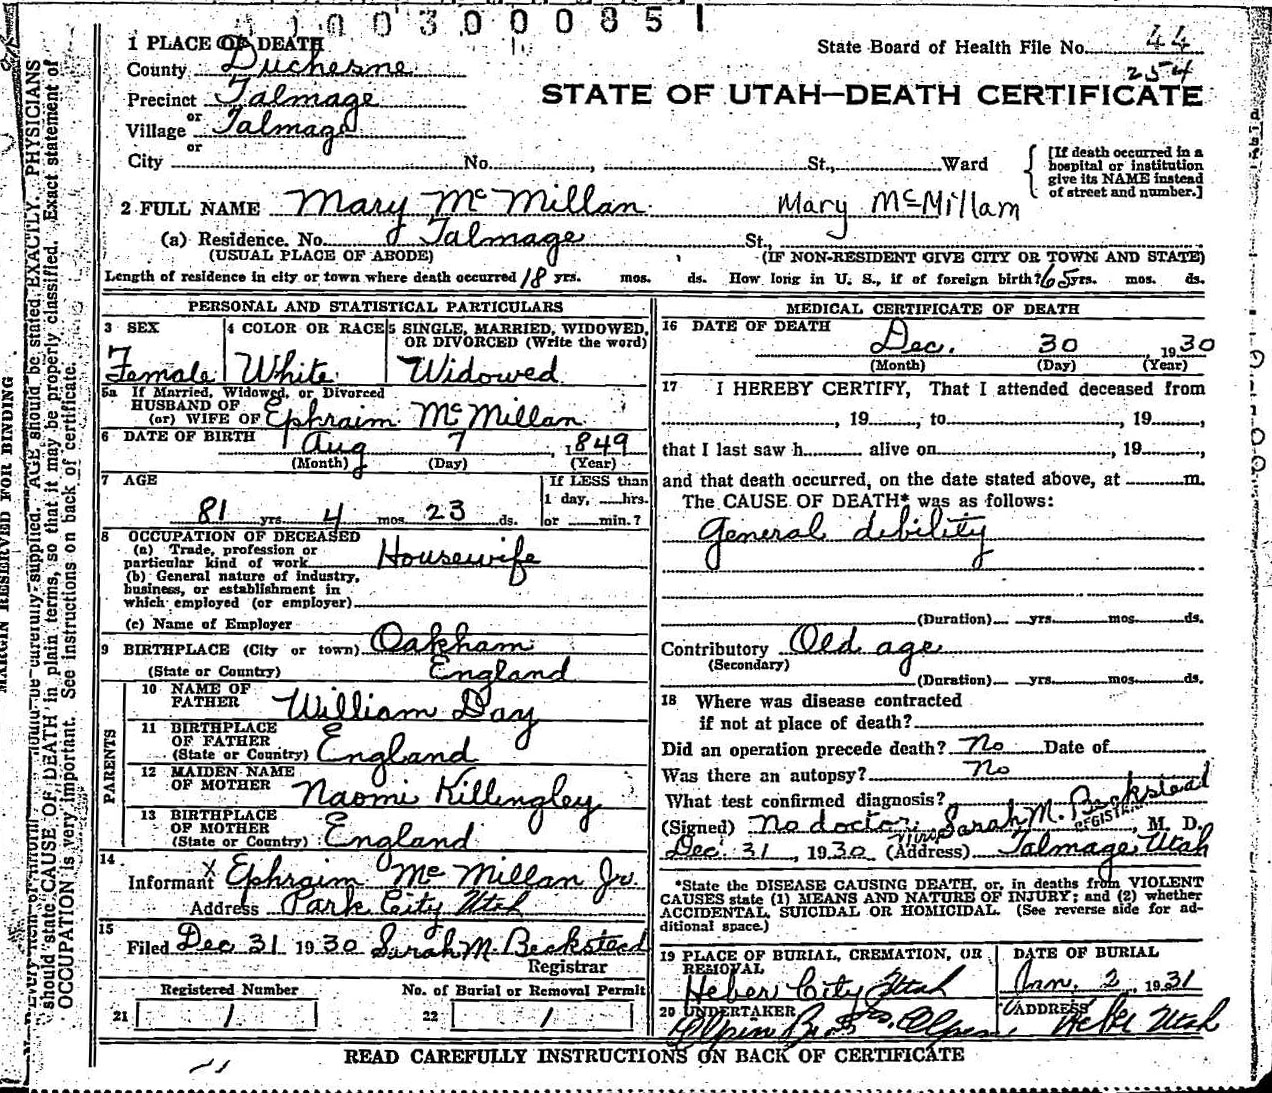 003000851
1 PLACE OF DEATH
State Board of Health File No. 44
254
County Duchesne
Precinct Talmage
STATE OF UTAH—DEATH CERTIFICATE
or
Village Talmage
or
City No. , St., Ward
[If death occurred in a hospital or institution give its NAME instead of street and number.]
2 FULL NAME Mary McMillan Mary McMillam
(a) Residence. No. Talmage St.,
(USUAL PLACE OF ABODE) (IF NON-RESIDENT GIVE CITY OR TOWN AND STATE)
Length of residence in city or town where death occurred 18 yrs. mos. ds. How long in U. S., if of foreign birth? 65 yrs. mos. ds.
PERSONAL AND STATISTICAL PARTICULARS
3 SEX 4 COLOR OR RACE 5 SINGLE, MARRIED, WIDOWED, OR DIVORCED (Write the word)
Female White Widowed
5a If Married, Widowed, or Divorced
HUSBAND OF
(or) WIFE OF Ephraim McMillan
6 DATE OF BIRTH Aug 7, 1849
(Month) (Day) (Year)
7 AGE If LESS than
1 day, hrs.
81 yrs. 4 mos. 23 ds. or min.?
8 OCCUPATION OF DECEASED
(a) Trade, profession or
particular kind of work Housewife
(b) General nature of industry,
business, or establishment in
which employed (or employer)
(c) Name of Employer
9 BIRTHPLACE (City or town) Oakham
(State or Country) England
PARENTS
10 NAME OF
FATHER William Day
11 BIRTHPLACE
OF FATHER
(State or Country) England
12 MAIDEN NAME
OF MOTHER Naomi Killingley
13 BIRTHPLACE
OF MOTHER
(State or Country) England
14
Informant X Ephraim McMillan Jr.
Address Park City Utah
15
Filed Dec 31 1930 Sarah M. Beckstead
Registrar
Registered Number No. of Burial or Removal Permit
21 1 22 1
MEDICAL CERTIFICATE OF DEATH
16 DATE OF DEATH
Dec. 30 1930
(Month) (Day) (Year)
17 I HEREBY CERTIFY, That I attended deceased from
, 19 , to , 19 ,
that I last saw h alive on , 19 ,
and that death occurred, on the date stated above, at m.
The CAUSE OF DEATH* was as follows:
General debility
(Duration) yrs. mos. ds.
Contributory Old age
(Secondary)
(Duration) yrs. mos. ds.
18 Where was disease contracted
if not at place of death?
Did an operation precede death? No Date of
Was there an autopsy? No
What test confirmed diagnosis?
(Signed) No doctor. Sarah M. Beckstead REGISTRAR, M. D.
Dec. 31, 1930 (Address) Talmage, Utah
*State the DISEASE CAUSING DEATH, or, in deaths from VIOLENT
CAUSES state (1) MEANS AND NATURE OF INJURY; and (2) whether
ACCIDENTAL, SUICIDAL OR HOMICIDAL. (See reverse side for ad-
ditional space.)
19 PLACE OF BURIAL, CREMATION, OR REMOVAL DATE OF BURIAL
Heber City Utah Jan. 2, 1931
20 UNDERTAKER ADDRESS
Olpin Bros Olpin Heber Utah
READ CAREFULLY INSTRUCTIONS ON BACK OF CERTIFICATE
MARGIN RESERVED FOR BINDING
carefully supplied. AGE should be stated EXACTLY. PHYSICIANS
should state CAUSE OF DEATH in plain terms, so that it may be properly classified. Exact statement of
OCCUPATION is very important. See instructions on back of certificate.